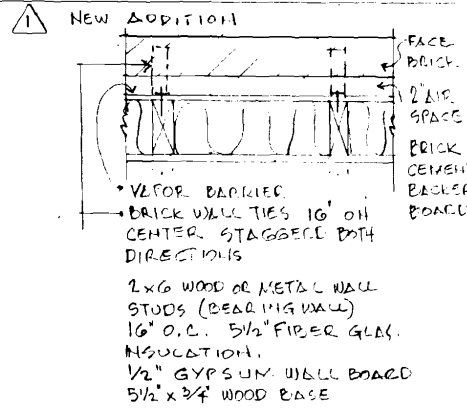 1 NEW ADDITION
FACE
BRICK
2" AIR
SPACE
BRICK
CEMENT
BACKER
BOARD
• VAPOR BARRIER
• BRICK WALL TIES 16" ON
CENTER STAGGERED BOTH
DIRECTIONS
2x6 WOOD OR METAL WALL
STUDS (BEARING WALL)
16" O.C. 5 1/2" FIBER GLAS.
INSULATION.
1/2" GYPSUM WALL BOARD
5 1/2" x 3/4" WOOD BASE